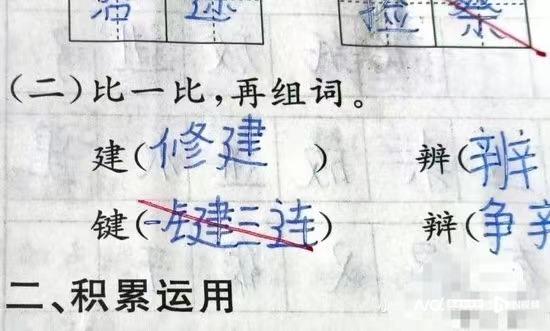 捡 察
(二)比一比,再组词。
建(修建) 辨(辨
键(一键三连) 辩(争辩
二、积累运用